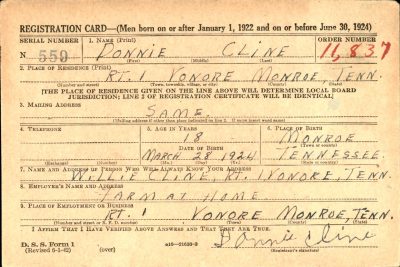 REGISTRATION CARD—(Men born on or after January 1, 1922 and on or before June 30, 1924)
SERIAL NUMBER 1. NAME (Print) ORDER NUMBER
N 559 DONNIE CLINE 11,837
(First) (Middle) (Last)
2. PLACE OF RESIDENCE (Print)
RT. 1 VONORE MONROE, TENN.
[THE PLACE OF RESIDENCE GIVEN ON THE LINE ABOVE WILL DETERMINE LOCAL BOARD
JURISDICTION; LINE 2 OF REGISTRATION CERTIFICATE WILL BE IDENTICAL]
3. MAILING ADDRESS
SAME.
[Mailing address if other than place indicated on line 2. If same insert word same]
4. TELEPHONE 5. AGE IN YEARS 6. PLACE OF BIRTH
18 MONROE
DATE OF BIRTH (Town or county)
MARCH 28 1924 TENNESSEE.
(Exchange) (Number) (Mo.) (Day) (Yr.) (State or country)
7. NAME AND ADDRESS OF PERSON WHO WILL ALWAYS KNOW YOUR ADDRESS
WILLIE CLINE, RT. 1 VONORE, TENN.
8. EMPLOYER'S NAME AND ADDRESS
FARM AT HOME
9. PLACE OF EMPLOYMENT OR BUSINESS
RT. 1 VONORE MONROE, TENN.
(Number and street or R. F. D. number) (Town) (County) (State)
I AFFIRM THAT I HAVE VERIFIED ABOVE ANSWERS AND THAT THEY ARE TRUE.
D. S. S. Form 1
(Revised 6-1-42) (over) 16—21630-2 Donnie Cline
(Registrant's signature)